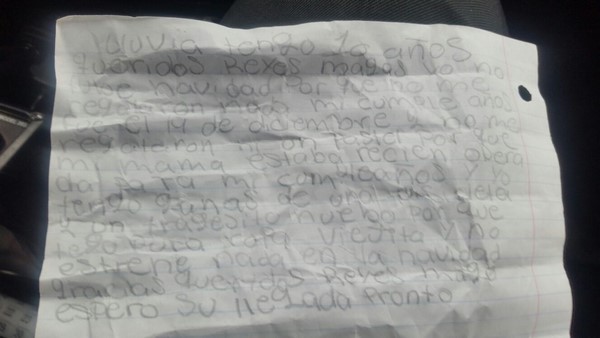 lluvia tengo 10 años
queridos Reyes magos yo no
tube navidad por que no me
regalaron nada mi cumple años
es el 14 de diciembre y no me
regalaron ni un pastel por que
mi mama estaba recien opera
da para mi compleaños y yo
tengo ganas de una
y un nuebo por que
tego pura ropa viejita y no
estrene nada en la navidad
gracias queridos Reyes magos
espero su llegada pronto